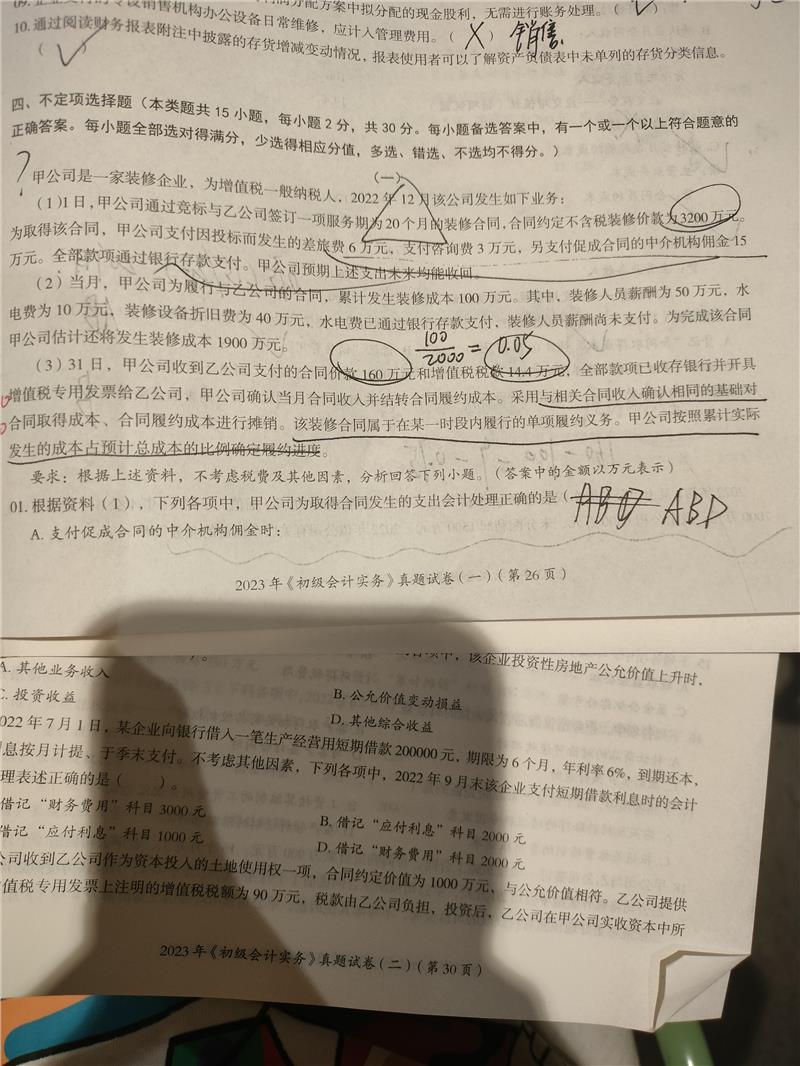 利润分配方案中拟分配的现金股利，无需进行账务处理。（
专设销售机构办公设备日常维修，应计入管理费用。（ X ） 销售
10.通过阅读财务报表附注中披露的存货增减变动情况，报表使用者可以了解资产负债表中未单列的存货分类信息。
（ √ ）
四、不定项选择题（本类题共 15 小题，每小题 2 分，共 30 分。每小题备选答案中，有一个或一个以上符合题意的
正确答案。每小题全部选对得满分，少选得相应分值，多选、错选、不选均不得分。）
（一）
? 甲公司是一家装修企业，为增值税一般纳税人，2022 年 12 月该公司发生如下业务：
（1）1日，甲公司通过竞标与乙公司签订一项服务期为20个月的装修合同，合同约定不含税装修价款为3200万元。
为取得该合同，甲公司支付因投标而发生的差旅费 6 万元，支付咨询费 3 万元，另支付促成合同的中介机构佣金 15
万元。全部款项通过银行存款支付。甲公司预期上述支出未来均能收回。
（2）当月，甲公司为履行与乙公司的合同，累计发生装修成本 100 万元。其中，装修人员薪酬为 50 万元，水
电费为 10 万元，装修设备折旧费为 40 万元，水电费已通过银行存款支付，装修人员薪酬尚未支付。为完成该合同
甲公司估计还将发生装修成本 1900 万元。
100/2000 = 0.05
（3）31 日，甲公司收到乙公司支付的合同价款 160 万元和增值税税款 14.4 万元，全部款项已收存银行并开具
增值税专用发票给乙公司，甲公司确认当月合同收入并结转合同履约成本。采用与相关合同收入确认相同的基础对
合同取得成本、合同履约成本进行摊销。该装修合同属于在某一时段内履行的单项履约义务。甲公司按照累计实际
发生的成本占预计总成本的比例确定履约进度。
要求：根据上述资料，不考虑税费及其他因素，分析回答下列小题。（答案中的金额以万元表示）
01.根据资料（1），下列各项中，甲公司为取得合同发生的支出会计处理正确的是（ ABD
A.支付促成合同的中介机构佣金时：
2023 年《初级会计实务》真题试卷（一）（第 26 页）
项中，该企业投资性房地产公允价值上升时，
）。
A.其他业务收入
B.公允价值变动损益
C.投资收益
D.其他综合收益
022 年 7 月 1 日，某企业向银行借入一笔生产经营用短期借款 200000 元，期限为 6 个月，年利率 6%，到期还本，
息按月计提、于季末支付。不考虑其他因素，下列各项中，2022 年 9 月末该企业支付短期借款利息时的会计
理表述正确的是（ ）。
借记“财务费用”科目 3000 元
B.借记“应付利息”科目 2000 元
借记“应付利息”科目 1000 元
D.借记“财务费用”科目 2000 元
公司收到乙公司作为资本投入的土地使用权一项，合同约定价值为 1000 万元，与公允价值相符。乙公司提供
值税专用发票上注明的增值税税额为 90 万元，税款由乙公司负担，投资后，乙公司在甲公司实收资本中所
2023 年《初级会计实务》真题试卷（二）（第 30 页）